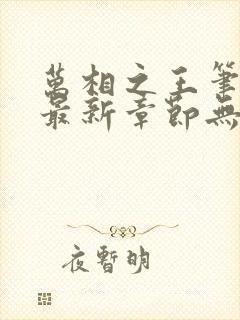 萬相之王筆
最新章節無
夜暫明